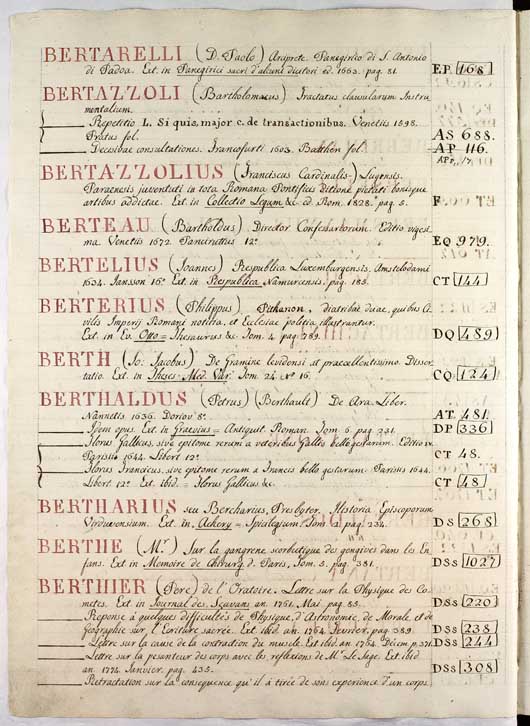 BERTARELLI (D. Paolo) Panegirico di S. Antonio
di Padoa. Ext. in Panegirici sacri d'alcuni ed. 1663. pag. 81. EP. 168
BERTAZZOLI (Bartholomaeus) Tractatus clausularum Instru
mentalium.
Repetitio L. Si quis, major c. de transactionibus. Venetiis
Pratus fol. AS 688.
Decisivae consultationes. Francofurti 1603. fol. AP 116.
BERTAZZOLIUS (Franciscus Cardinalis)
Paraenesis juventuti in tota Romana Pontificis ditione pietati bonisque
artibus addictae. Ext in Collectio Legum &c. ed. Rom. 1828. pag. 5. F
BERTEAU (Bartholdus) Director Confessariorum. Editio viges
ma. Venetiis 1672. 12º EQ 979.
BERTELIUS (Joannes) Respublica Luxemburgensis. Amstelodami
1634. Jansson 16º Ext. in Respublica Namurcensis. pag. 185. CT 144
BERTERIUS (Philippus) Pithanon, diatribae duae, quibus Ci
vilis Imperij Romani notitia, et Ecclesiae politia illustrantur.
Ext. in Ev. Otto = Thesaurus &c. Tom. 4. pag. 789. DQ 489
BERTH (Jo: Jacobus) De Gramine levidensi et praecellentissimo. Disser
tatio. Ext. in Theses Med. Var. Tom. 24 Nº 16. CQ 124
BERTHALDUS (Petrus) (Berthault) De Ara Liber.
Nannetis. 1636. Doriou 8º AT. 481.
Idem opus. Ext. in Graevius = Antiquit. Roman. Tom 6. pag. 231. DP 336
Florus Gallicus, sive epitome rerum a veteribus Gallis bello gestarum. Editio
Parisiis 1644. Libert 12º CT 48.
Florus Francicus, sive epitome rerum a Francis bello gestarum. Parisiis 1644.
Libert 12º Ext. ibid = Florus Gallicus &c. CT 48
BERTHARIUS seu Bercharius, Presbyter. Historia Episcoporum
Virdunensium. Ext. in Achery = Spicilegium. Tom. pag. 234. DS 268
BERTHE (Mr.) Sur la gangrene scorbutique des gengives dans les En
fans. Ext in Mémoire de Chirurg. d. Paris, Tom. 5. pag. 381. DSs 1027
BERTHIER (Pere) de l'Oratoire. Lettre sur la Physique des Co
metes. Ext in Journal des Sçavans an. 1761. Mai pag. 85. DSs 220
Reponse à quelques difficultés de Physique, d'Astronomie, de Morale, et de
Géographie sur l'Ecriture sacrée. Ext. ibid. an. 1764 Fevrier, pag. 389. DSs 238
Lettre sur la cause de la contraction du muscle. Ext ibid. an 1764. Décem p. 371. DSs 244
Lettre sur la pesanteur des corps avec les réflexions de Mr. Le Sage. Ext ibid
an. 1774. Janvier pag. 435. DSs 308
Retractation sur la consequence qu'il a tirée de sons experience d'un corps